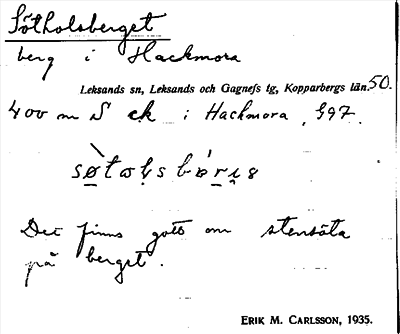 Sötholsberget
berg i Hackmora
Leksands sn, Leksands och Gagnefs tg, Kopparbergs län. 50.
400 m S ck i Hackmora, 997.
Det finns gott om stensöta
på berget.
ERIK M. CARLSSON, 1935.